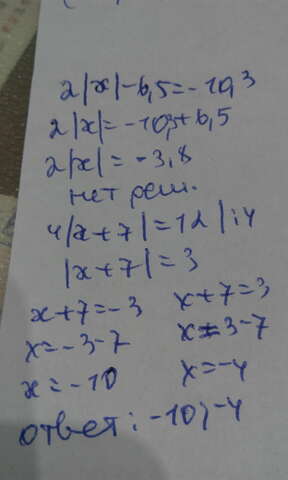 2|x|-6,5=-10,3
2|x|=-10,3+6,5
2|x|=-3,8
нет реш.
4|x+7|=12 |:4
|x+7|=3
x+7=-3 x+7=3
x=-3-7 x=3-7
x=-10 x=-4
ответ: -10; -4